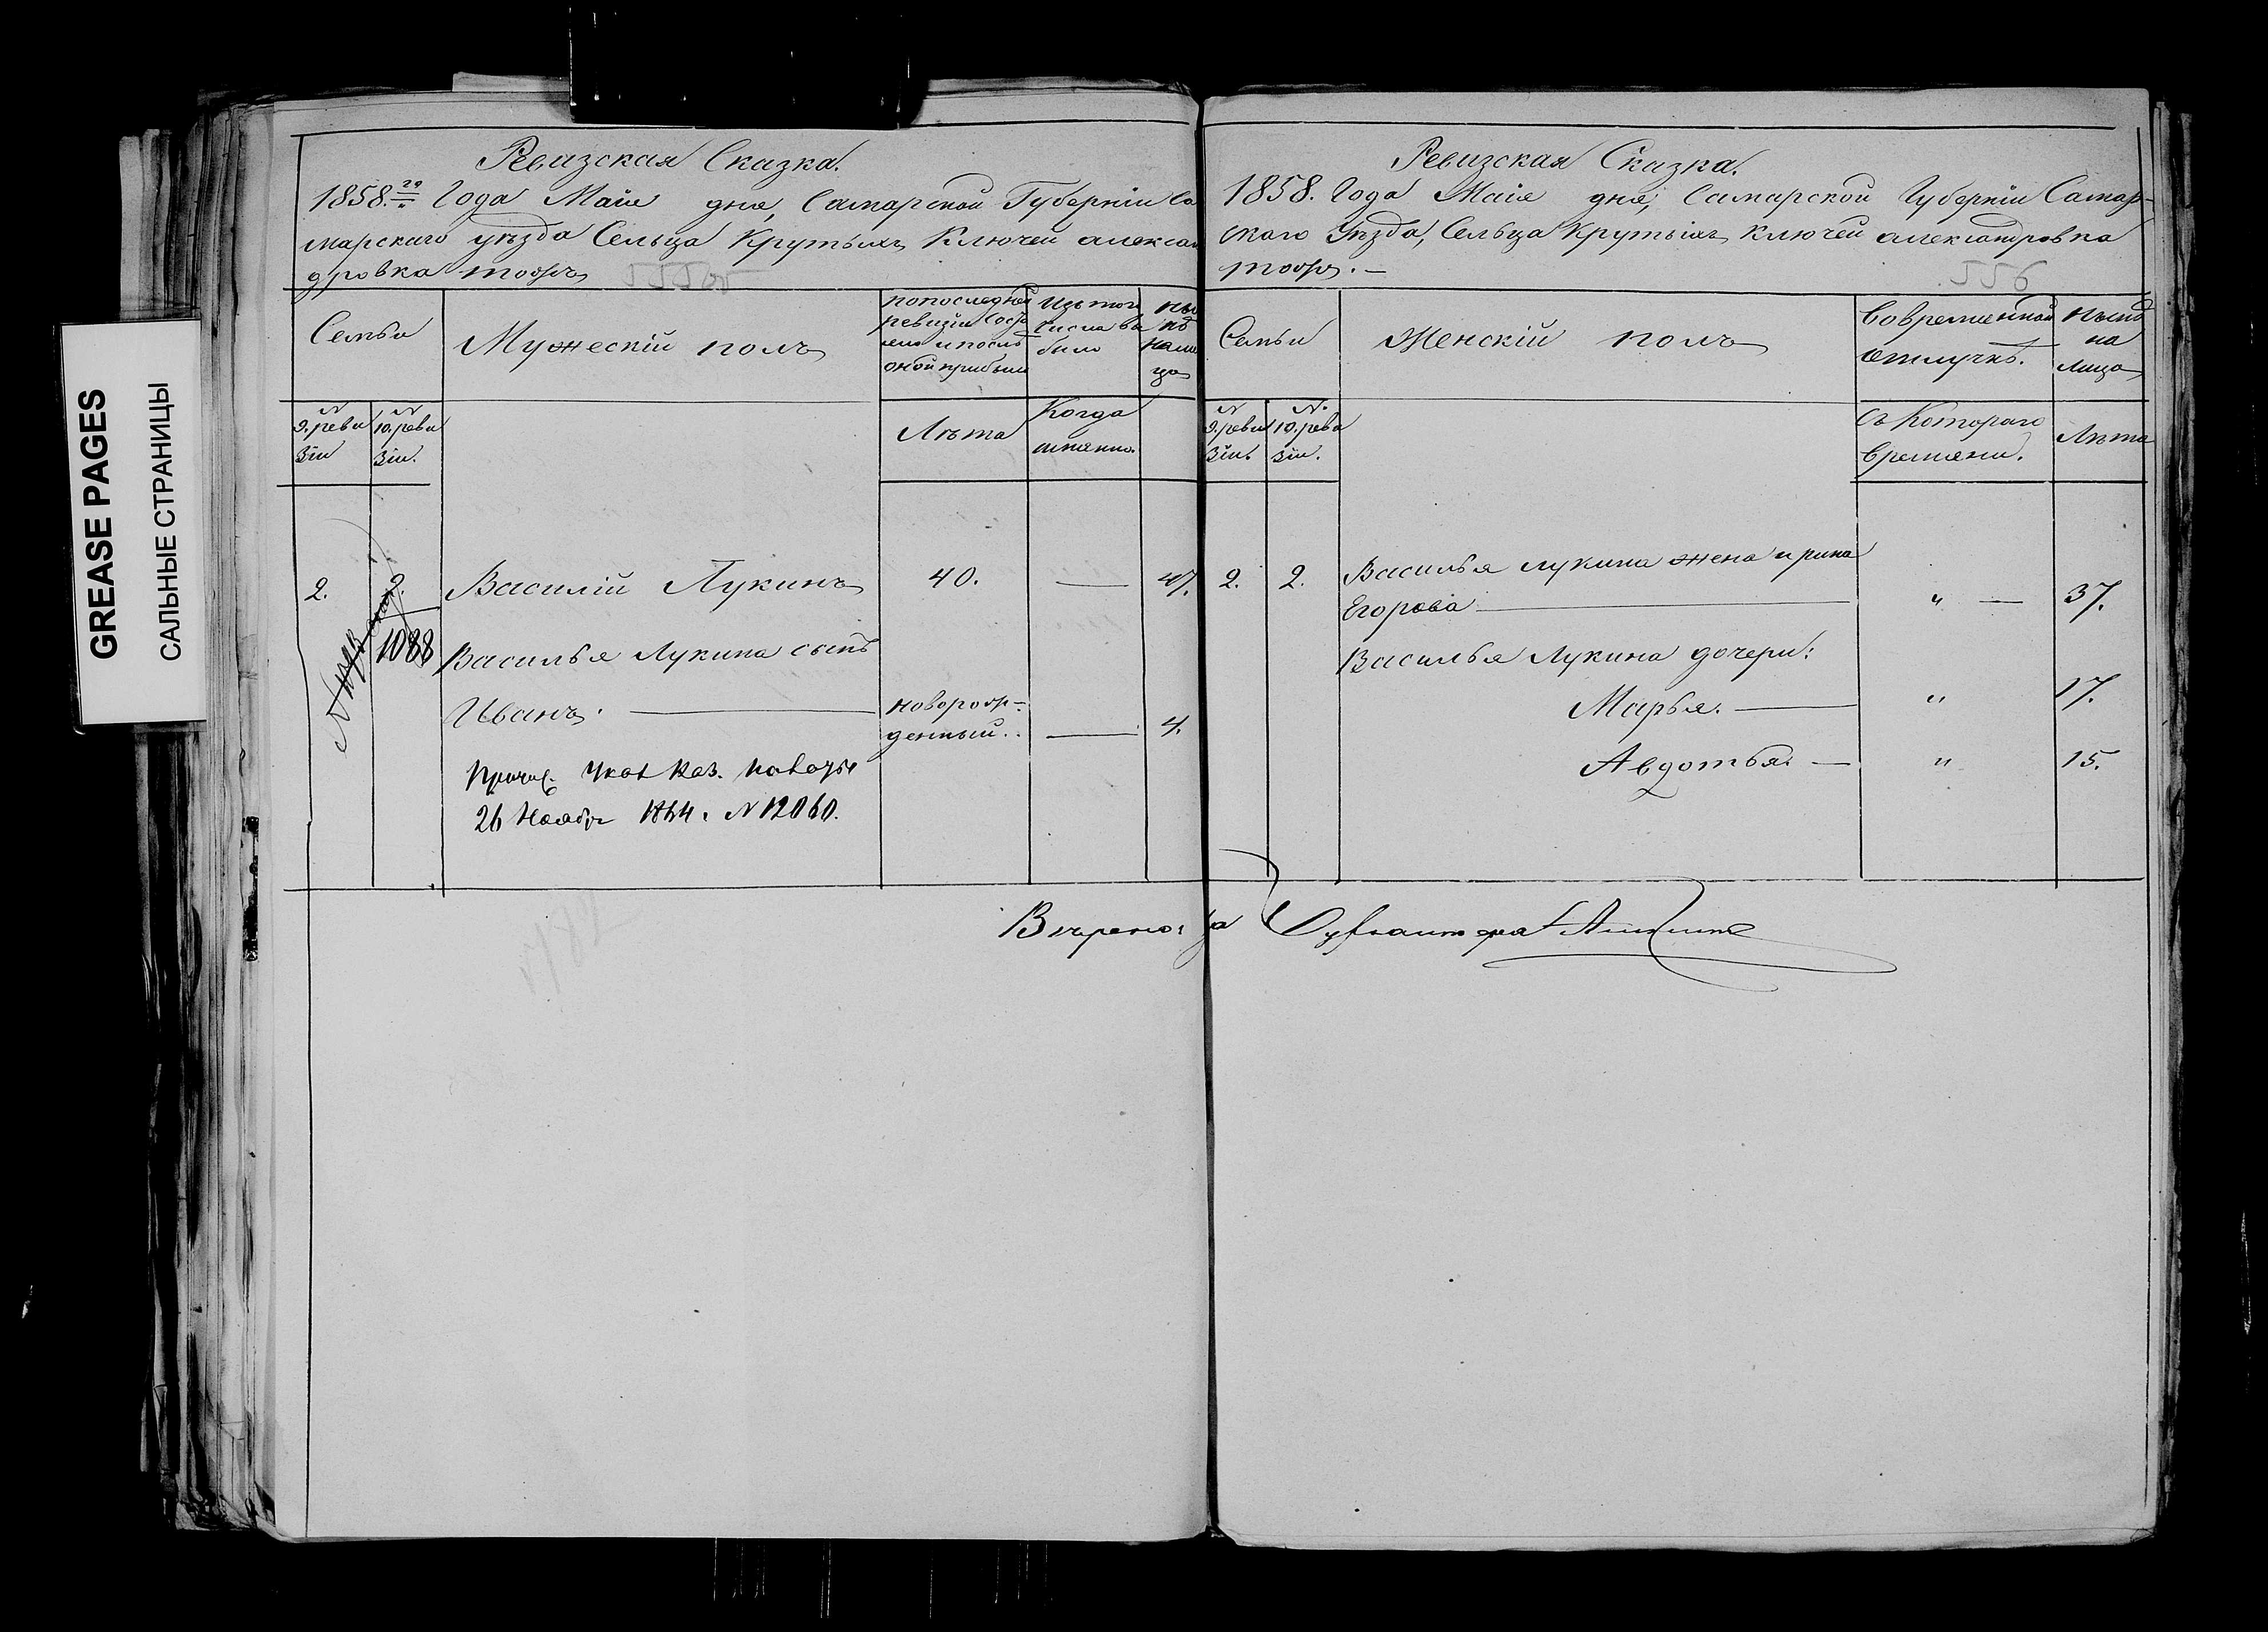 GREASE PAGES
САЛЬНЫЕ СТРАНИЦЫ
Ревизская Сказка.
1858.го Года Маія дня, Самарской Губерніи Са
марскаго уѣзда Сельца Крутыхъ Ключей алексан
дровка тожъ
555об
Семьи
Мужескій полъ
по последней
ревизіи состо
яло и послѣ
оной прибыло
Изъ того
числа вы
было
ны
нѣ
на ли
цо
№
9. реви
зіи
№
10. реви
зіи.
Лѣта
Когда
имянно.
2.
2.
1088
Василій Лукинъ
40.
47.
Василья Лукина сынъ
Иванъ.
новорож-
денный.
4.
Причис. Указ Каз. Палаты
26 Ноябр 1864. № 12060.
Ревизская Сказка.
1858. Года Маія дня, Самарской Губерніи Самар-
скаго Уѣзда, Сельца Крутыхъ Ключей александровка
тожъ.
556
Семьи
Женскій полъ
Во временной
отлучкѣ.
нынѣ
на
лицо
№
9. реви
зіи.
№.
10. реви
зіи.
Съ Котораго
времяни.
Лѣта
2.
2.
Василья лукина жена ирина
Егорова
"
37.
Василья Лукина дочери:
Марья.
"
17.
Авдотья.
"
15.
Вѣрно: за